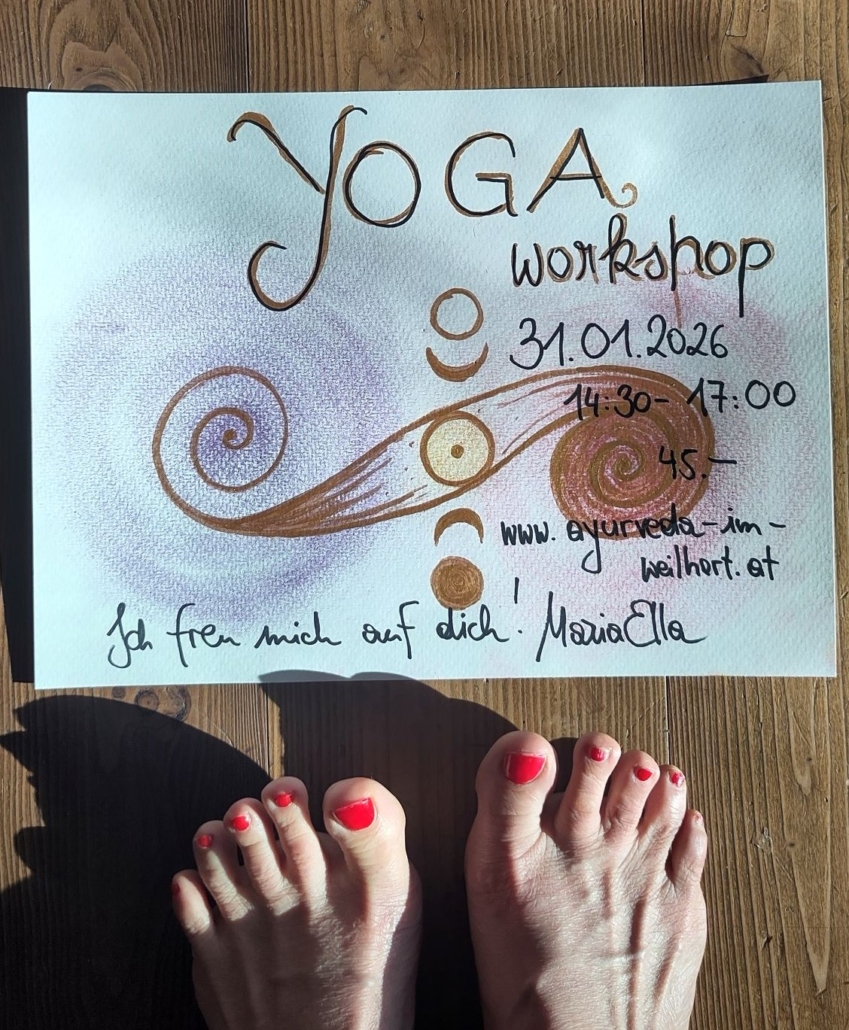 YOGA
workshop
31.01.2026
14:30- 17:00
45.-
www. ayurveda-im-
weilhart.at
Ich freu mich auf dich! MariaElla